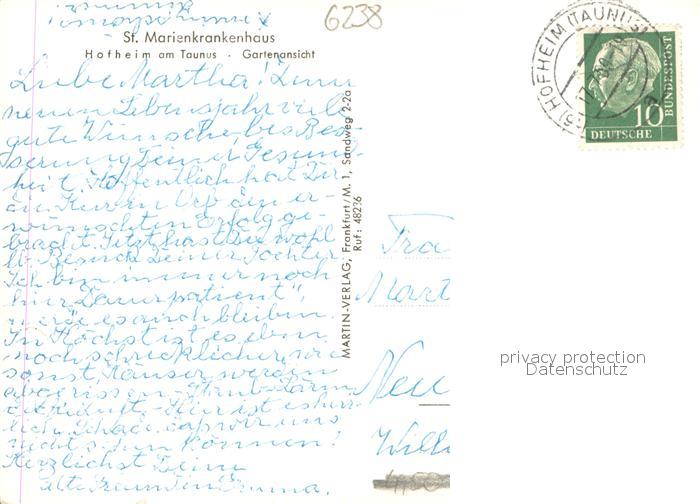 6238
St. Marienkrankenhaus
Hofheim am Taunus · Gartenansicht
Liebe Martha! Zum
neuen Lebensjahr viel
gute Wünsche, bes Bes-
serung Deiner Gesund-
heit. Hoffentlich hat Dir
die Kur in Orb den er-
wünschten Erfolg ge-
bracht. Jetzt hast Du wohl
Besuch Deiner Tochter
Ich bin immer noch
hier "Dauerpatient",
werde es auch bleiben.
In Höchst ist es eben
noch schrecklicher, wie
sonst, Häuser werden
abgerissen, Staub Lärm
Hier ist es herr-
lich. Schade, daß wir uns
nicht sehen können!
Herzlichst Deine
alte Freundin Emma.
MARTIN-VERLAG, Frankfurt/M. 1, Sandweg 2-2a
Ruf: 48236
HOFHEIM (TAUNUS)
10
DEUTSCHE
BUNDESPOST
Fra
Mart
Neu
privacy protection
Datenschutz